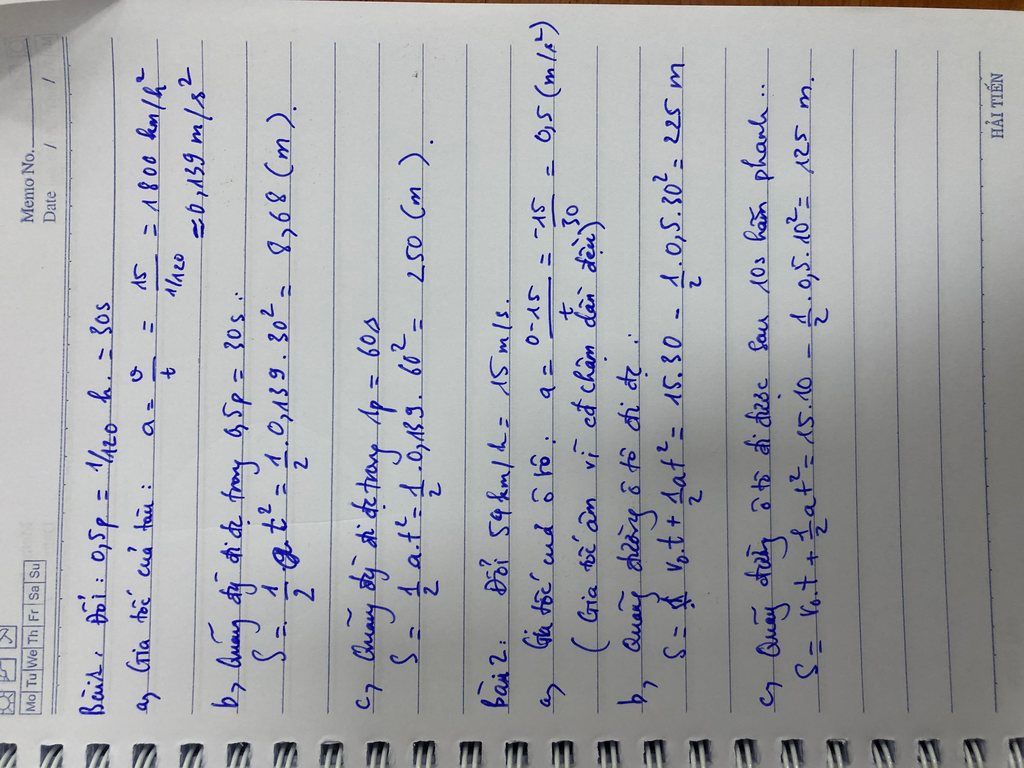 Memo No.
Date / /
Mo Tu We Th Fr Sa Su
Bài 1: Đổi: 0,5p = 1/120 h. = 30s
a, Gia tốc của tàu: a = v/t = 15/(1/120) = 1800 km/h²
= 0,139 m/s²
b, Quãng đg đi đc trong 0,5p = 30s:
S = 1/2 a.t² = 1/2.0,139.30² = 8,68 (m).
c, Quãng đg đi đc trong 1p = 60s
S = 1/2 a.t² = 1/2.0,139.60² = 250 (m).
Bài 2: Đổi 54km/h = 15 m/s.
a, Gia tốc cuả ô tô: a = (0-15)/t = -15/30 = 0,5 (m/s²)
( Gia tốc âm vì cđ chậm dần đều)
b, Quãng đường ô tô đi đc:
S = v₀.t + 1/2at² = 15.30 - 1/2.0,5.30² = 225 m
c, Quãng đường ô tô đi được sau 10s hãm phanh..
S = v₀.t + 1/2at² = 15.10 - 1/2.0,5.10² = 125 m.
HẢI TIẾN